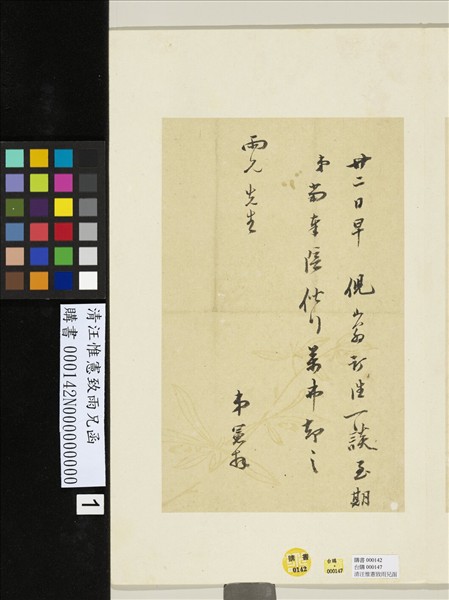 廿二日早 倪山翁訂往一談至期
弟當奉陪偕行萬弗卻之
雨兄先生
弟憲拜
清汪惟憲致雨兄函
購書 000142N000000000
1
購書
0142
台購
000147
購書 000142
台購 000147
清汪惟憲致雨兄函